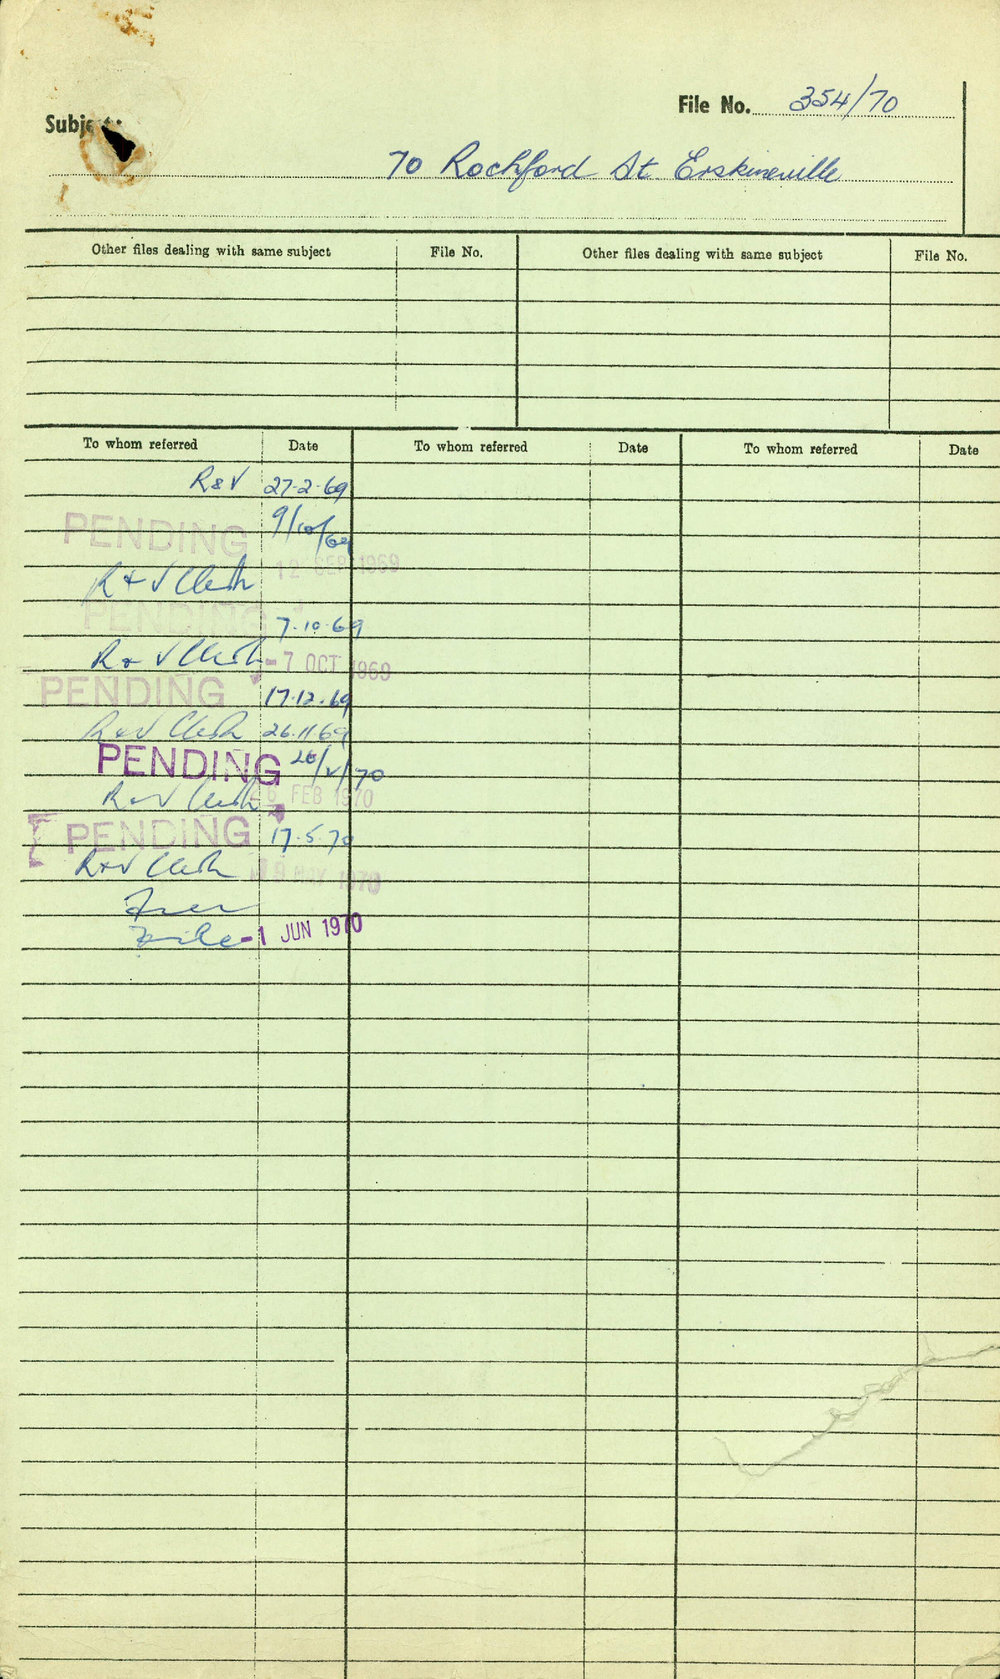 File No. 354/70
Subject:
70 Rochford St. Erskineville
Other files dealing with same subject File No. Other files dealing with same subject File No.
To whom referred Date To whom referred Date To whom referred Date
R&V 27-2-69
PENDING 9/10/69
12 SEP 1969
R+V Clerk
PENDING 7.10.69
R & V Clerk -7 OCT 1969
PENDING 17.12.69
R&V Clerk 26.11.69
PENDING 26/V/70
R&V Clerk FEB 1970
PENDING 17.5.70
R+V Clerk 19 MAY 1970
File -1 JUN 1970